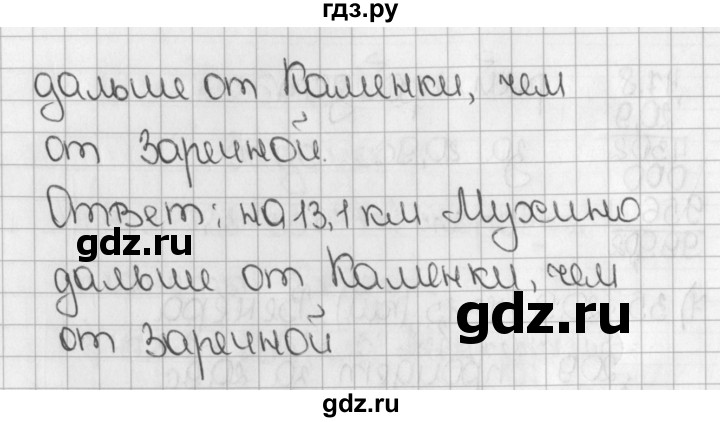 гдз.ру
дальше от Каменки, чем
от Заречной.
Ответ: на 13,1 км Мухино
gdz.ru
дальше от Каменки, чем
gdz.ru
от Заречной
gdz.ru